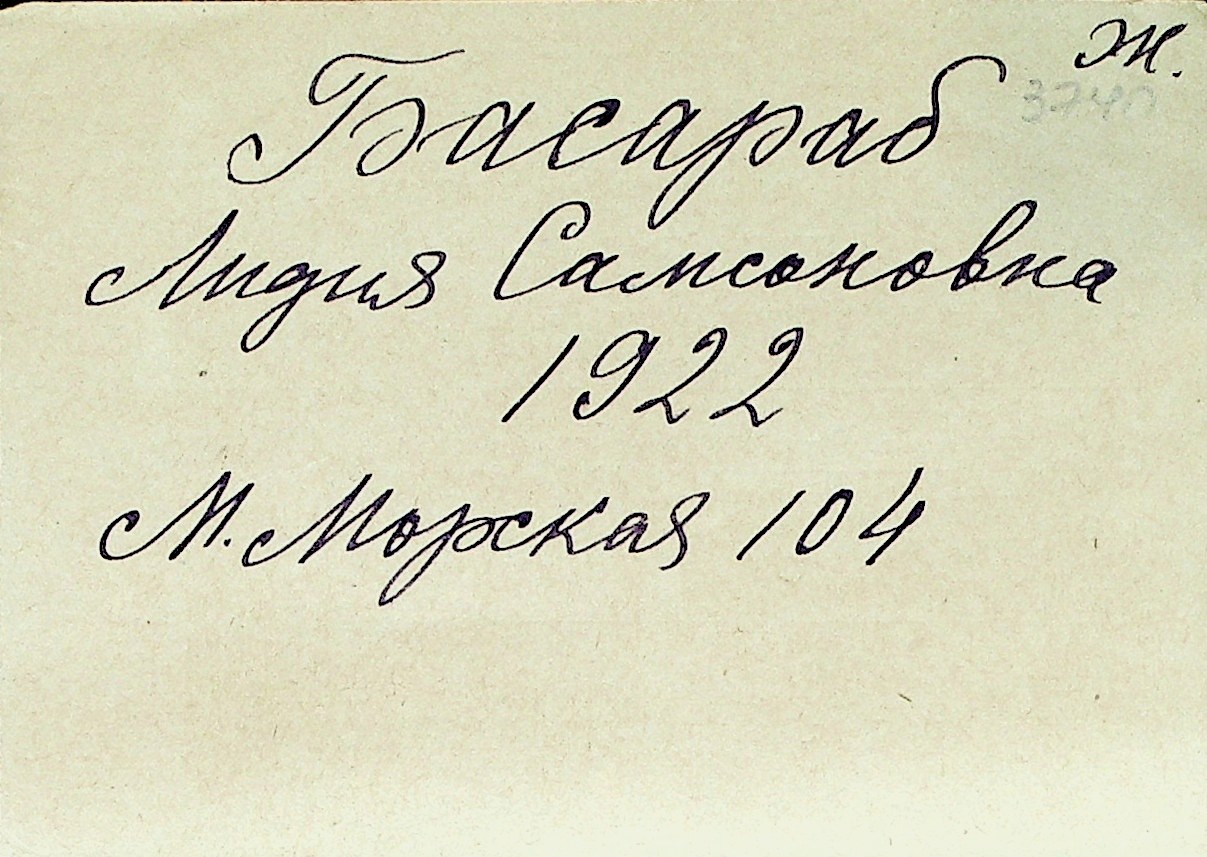 ж.
Басараб
Лидия Самсоновна
1922
М. Морская 104